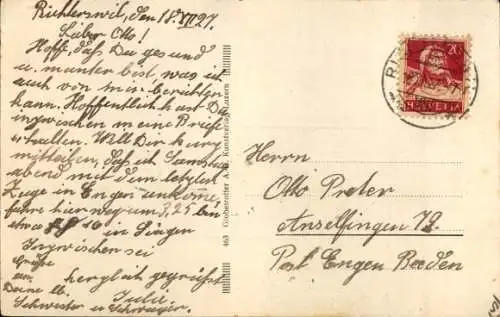 Richterswil, den 18.VII 27.
Lieber Otto!
Hoffe, daß Du gesund
u. munter bist, was ich
auch von mir berichten
kann. Hoffentlich hast Du
inzwischen meine Briefe
erhalten. Will Dir kurz
mitteilen, daß ich Samstag
abend mit dem letzten
Zuge in Engen ankomme,
fahre hier weg um 5,25 bin
etwa in Singen
Inzwischen sei
herzlich gegrüsst
Grüße
an
Deine lb.
Schwester u. Schwager.
Julie
463 Globetrotter A.G. Kunstverlag Luzern
20
HELVETIA
Herrn
Otto Preter
Anselfingen 72
Post Engen Baden